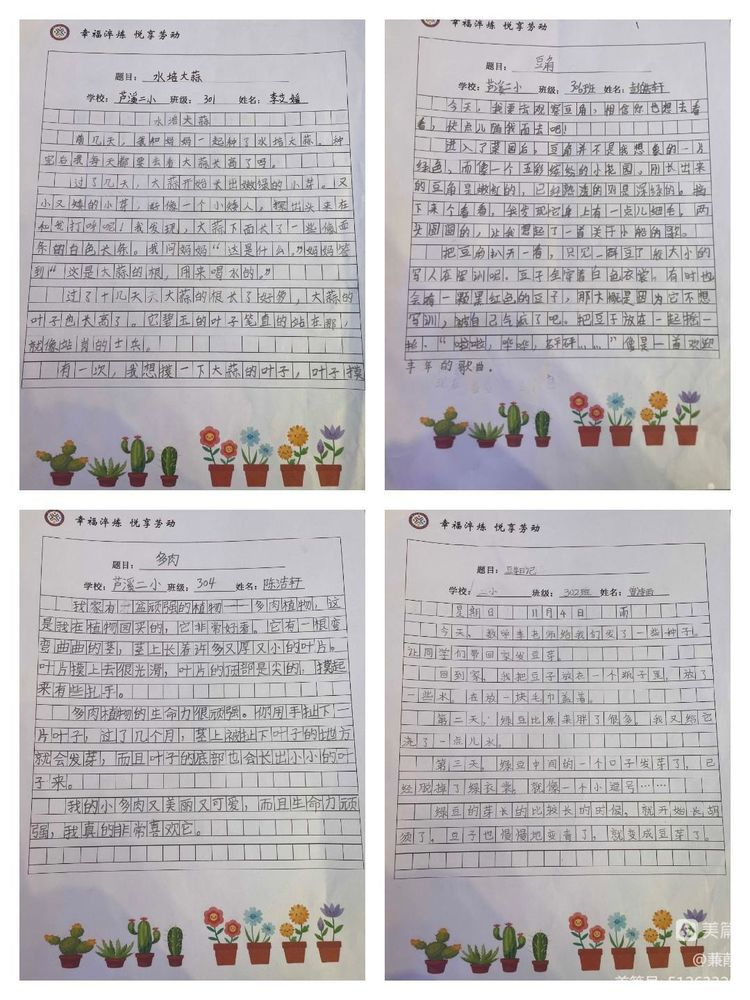 幸福淬炼 悦享劳动
题目：水培大蒜
学校：芦溪二小 班级：301 姓名：李艾媛
水培大蒜
前几天，我和妈妈一起种了水培大蒜。种
完后我每天都要去看大蒜长高了吗。
过了几天，大蒜开始长出嫩绿的小芽。又
小又矮的小芽，好像一个小矮人。探出头来在
和我打呼呢！我发现，大蒜下面长了一些像面
条的白色大条。我问妈妈“这是什么。”妈妈答
到“这是大蒜的根，用来喝水的。”
过了十几天，大蒜的根长了好多，大蒜的
叶子也长高了。它碧玉的叶子笔直的站在那，
就像站岗的士兵。
有一次，我想摸一下大蒜的叶子，叶子摸
幸福淬炼 悦享劳动
题目：豆角
学校：芦溪二小 班级：306班 姓名：
今天，我要去观察豆角，相信你也想去看
看，快点儿随我而去吧！
进入了菜园后，豆角并不是我想象的一片
绿色，而像一个五彩缤纷的小花园。刚长出来
的豆角是嫩红的，已经熟透的则是深绿的。摘
下来个看看，我发现它身上有一点儿细毛。两
头圆圆的，让我想起了一首关于小船的歌。
把豆角扒开一看，只见一群豆了般大小的
军人在军训呢。豆子坐穿着白色衣裳。有时也
会有一颗是红色的豆子，那大概是因为它不想
军训，被自己气成了吧。把豆子放在一起摇一
摇，“啦啦，哗哗，砰砰……”像是一首欢迎
丰年的歌曲。
幸福淬炼 悦享劳动
题目：多肉
学校：芦溪二小 班级：304 姓名：陈洁轩
我家有一盆顽强的植物——多肉植物，这
是我在植物园买的，它非常好看。它有一根弯
弯曲曲的茎，茎上长着许多又厚又小的叶片。
叶片摸上去很光滑，叶片的顶部是尖的，摸起
来有些扎手。
多肉植物的生命力很顽强。你用手扯下一
片叶子，过了几个月，茎上被扯下叶子的地方
就会发芽，而且叶子的底部也会长出小小的叶
子来。
我的小多肉又美丽又可爱，而且生命力顽
强，我真的非常喜欢它。
幸福淬炼 悦享劳动
题目：豆芽日记
学校：二小 班级：302班 姓名：
星期日 11月4日 雨
今天，数学李老师给我们发了一些种子。
让同学们带回家发豆芽。
回到家，我把豆子放在一个瓶子里，放了
一些水。在放一块毛巾盖着。
第二天，绿豆比原来胖了很多，我又给它
浇了一点儿水。
第三天。绿豆中间的一个口子发芽了，已
经脱掉了绿衣裳。就像一个小逗号……
绿豆的芽长的比较长的时候，就开始长胡
须了。豆子也慢慢地变青了，就变成豆芽了。
美篇